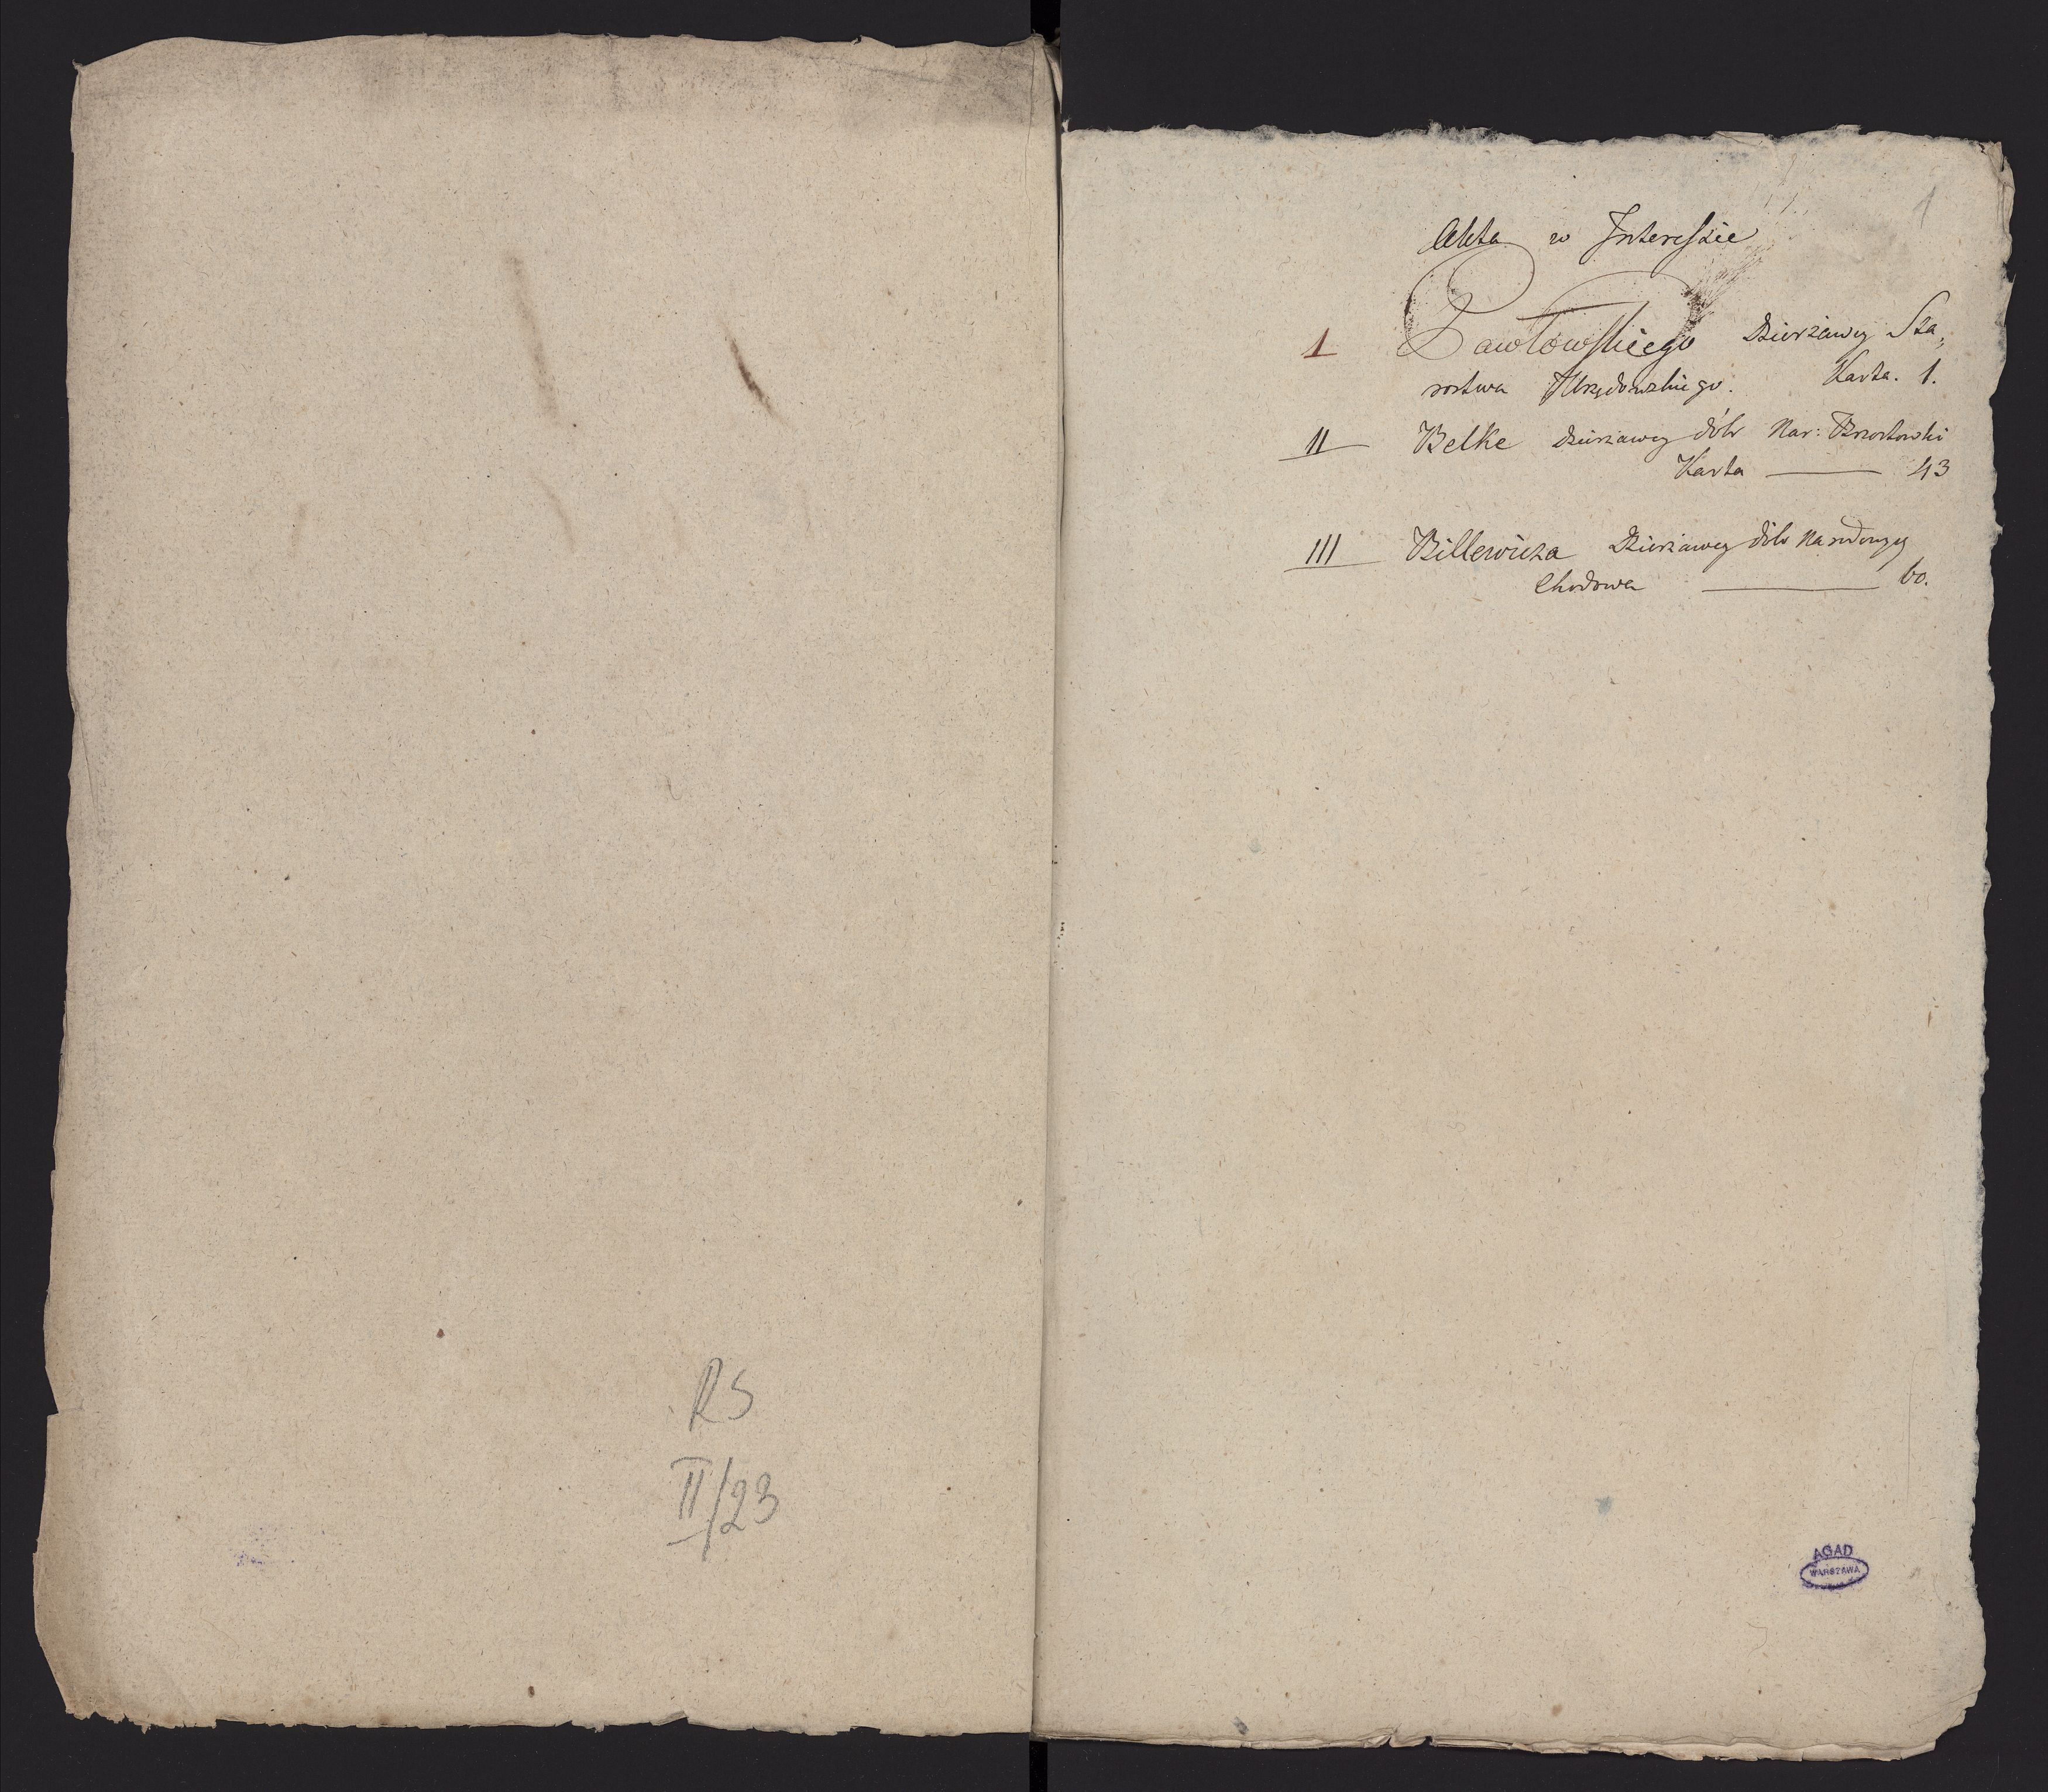 RS
II/23
1
Akta w Interessie
1 Pawłowskiego Dzierżawcy Sta„
rostwa Urzędowskiego. Karta. 1.
II Belke Dzierzawcy dóbr Nar: Brzostowki
Karta — 43
III Billewicza Dzierżawcy dóbr Narodowych
Chodowa — 60.
AGAD
WARSZAWA